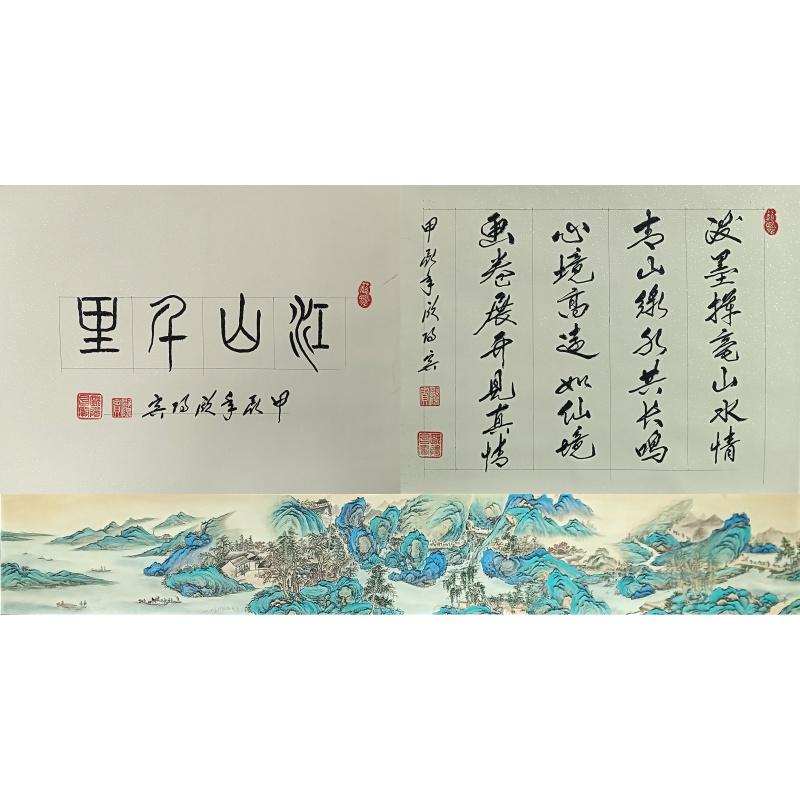 江山千里
甲辰年欧阳宾
泼墨挥毫山水情
青山绿水共长鸣
心境高远如仙境
画卷展开见真情
甲辰年欧阳宾